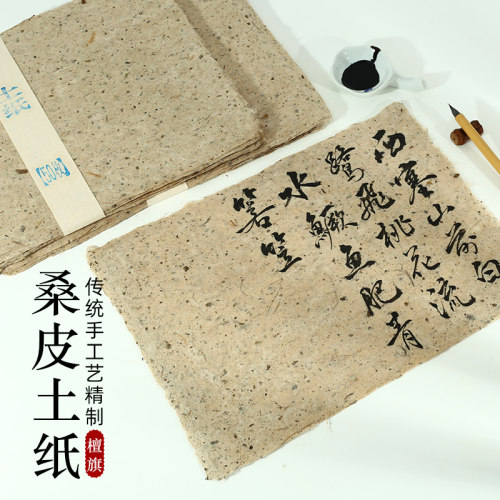 土纸
【50枚】
西塞山前白
鷺飛桃花流
水鱖魚肥青
箬笠
传统手工艺精制
桑皮土纸
檀旗